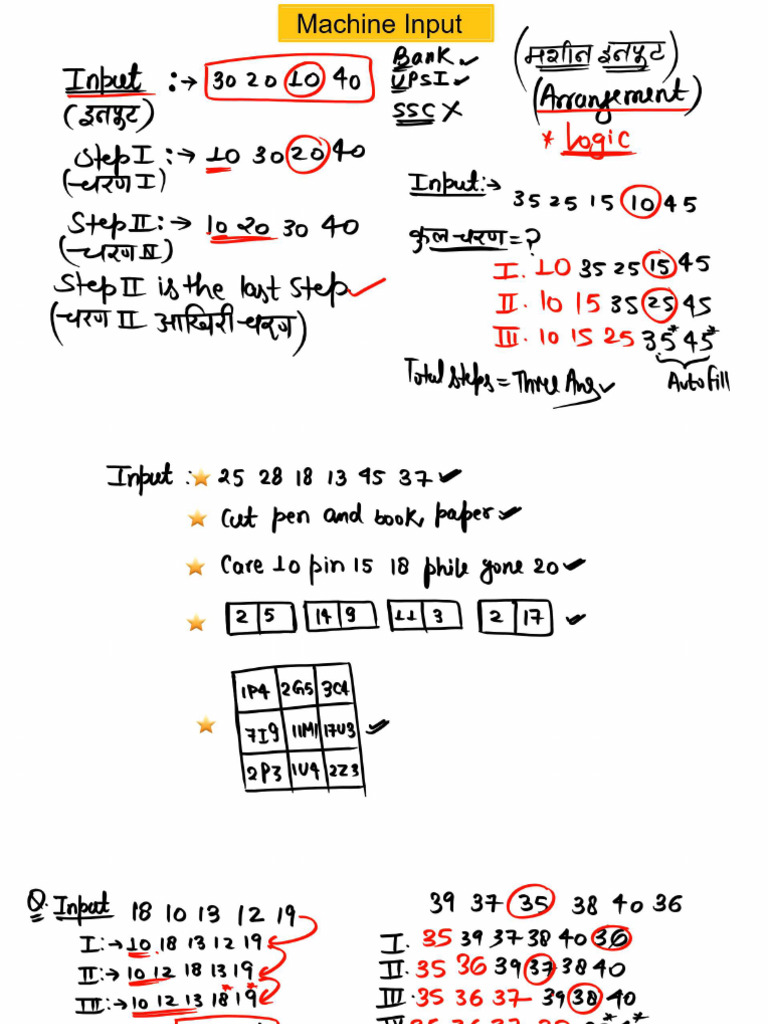 Machine Input
Input :→ 30 20 10 40
(इनपुट)
Step I :→ 10 30 20 40
(चरण I)
Step II :→ 10 20 30 40
(चरण II)
Step II is the last Step
(चरण II आखिरी चरण)
Bank ✓
UPSI ✓
SSC X
(मशीन इनपुट)
(Arrangement)
* Logic
Input :→ 35 25 15 10 45
कुल चरण = ?
I. 10 35 25 15 45
II. 10 15 35 25 45
III. 10 15 25 35* 45*
Total steps = Three Ans ✓
Autofill
Input : ⭐ 25 28 18 13 45 37 ✓
⭐ Cut pen and book, paper ✓
⭐ Care 10 pin 15 18 phile gone 20 ✓
⭐ 2 5 14 9 11 3 2 17 ✓
⭐ 1P4 2G5 3C4
7I9 11M1 17U3 ✓
2P3 1U4 2Z3
Q. Input 18 10 13 12 19
I :→ 10 18 13 12 19
II :→ 10 12 18 13 19
III :→ 10 12 13 18* 19*
39 37 35 38 40 36
I. 35 39 37 38 40 36
II. 35 36 39 37 38 40
III. 35 36 37 39 38 40